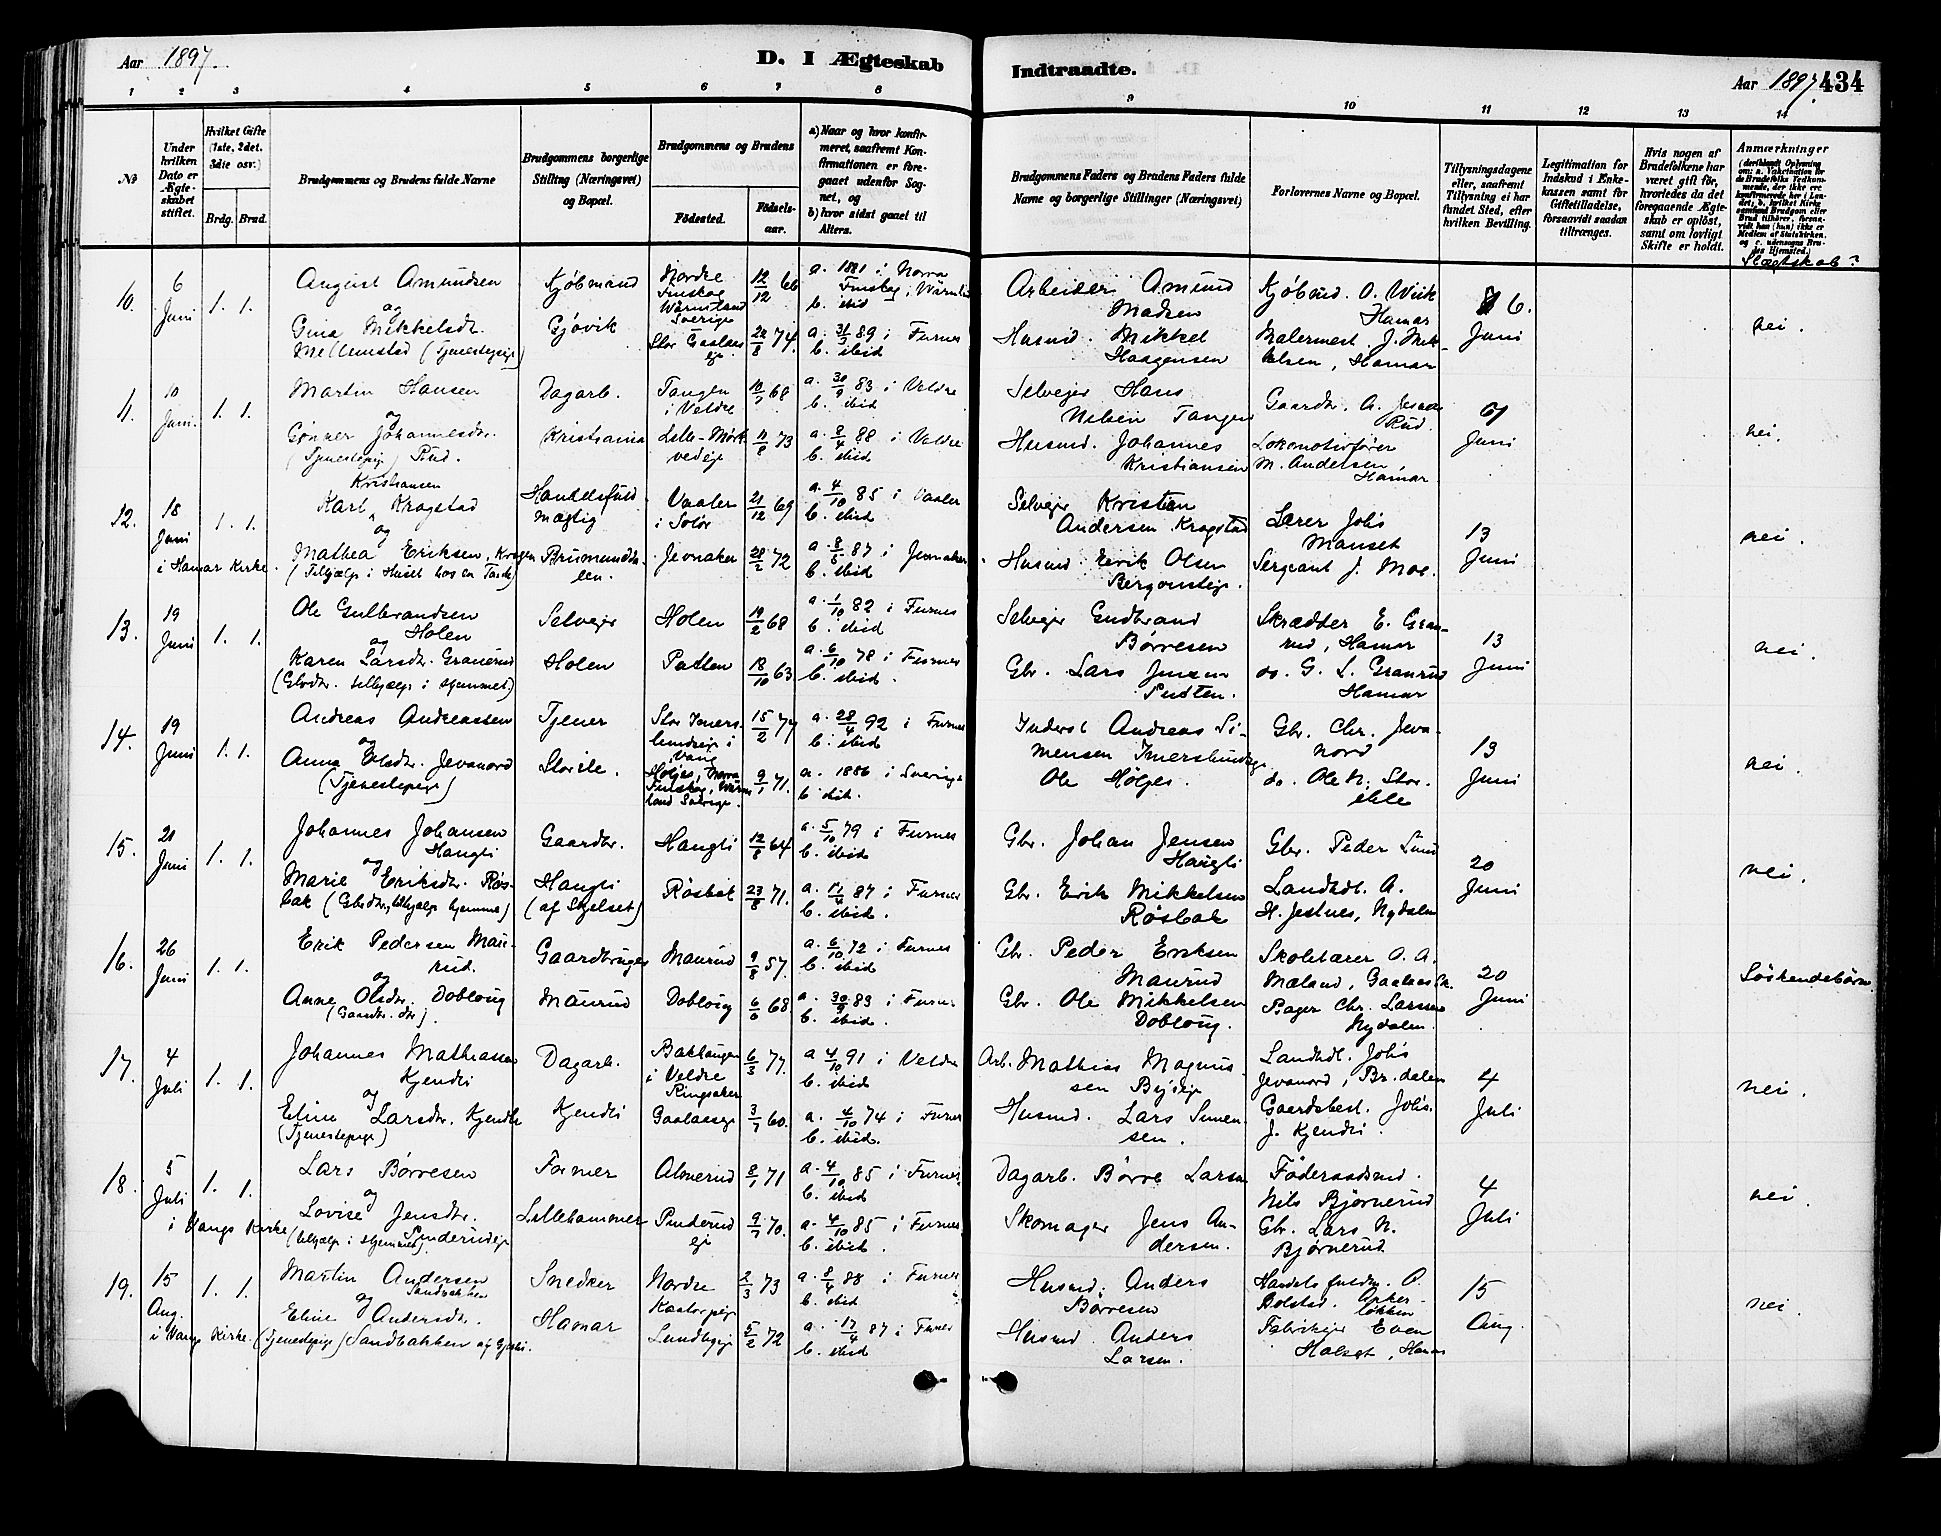 Aar 1897.
D. I Ægteskab
Indtraadte.
Aar 1897. 434
1 2 3 4 5 6 7 8 9 10 11 12 13 14
No
Under hvilken Dato er Ægteskabet stiftet.
Hvilket Gifte (1ste, 2det. 3die osv.)
Brdg. Brud.
Brudgommens og Brudens fulde Navne
Brudgommens borgerlige Stilling (Næringsvei) og Bopæl.
Brudgommens og Brudens
Fødested.
Fødselsaar.
a) Naar og hvor konfirmeret, saafremt Konfirmationen er foregaaet udenfor Sognet, og
b) hvor sidst gaaet til Alters.
Brudgommens Faders og Brudens Faders fulde Navne og borgerlige Stillinger (Næringsvei)
Forlovernes Navne og Bopæl.
Tillysningsdagene eller, saafremt Tillysning ei har fundet Sted, efter hvilken Bevilling.
Legitimation for Indskud i Enkekassen samt for Giftetilladelse, forsaavidt saadan tiltrænges.
Hvis nogen af Brudefolkene har været gift før, hvorledes da det foregaaende Ægteskab er opløst, samt om lovligt Skifte er holdt.
Anmærkninger
Slægtskab?
10. 6 Juni 1. 1.
August Amundsen
og
Gina Mikkelsdr.
Mellemstad (Tjenestepige)
Kjøbmand
Gjøvik
Nordre Finskog Wärmland Sverige
12/12 66
a. 1881 i Norra Finskog, Wärml.
b. ibid
Stor Gaalaas eje
22/8 74.
a. 31/7 89 i Furnes
b. ibid
Arbeider Amund Madsen
Husmd. Mikkel Haagensen
Kjøbmd. O. Wiik Hamar
Malermest. J. Mikkelsen, Hamar
6. Juni
nei.
11. 10 Juni. 1. 1.
Martin Hansen
og
Gønner Johannesdr.
(Tjenestepig) Rud.
Dagarb.
Kristiania
Tangen i Veldre
10/7 68
a. 30/9 83 i Veldre
b. ibid
Lille-Mørkvedeje
11/8 73
a. 8/4 88 i Veldre
b. ibid
Selvejer Hans Nilsen Tangen
Husmd. Johannes Kristiansen
Gaardbr. A. Jesnæs Rud.
Lokomotivfører M. Andersen, Hamar
Juni
nei.
12. 18 Juni 1. 1.
i Hamar Kirke.
Karl Kristiansen Kragstad
og
Mathea Eriksen, Kragen
(Tilhjælp i Huset hos en Tante)
Handelsfuldmægtig
Brumunddalen.
Vaaler i Solør
21/12 69
a. 4/10 85 i Vaaler
b. ibid
Jevnaker
28/2 72
a. 8/5 87 i Jevnaker
b. ibid
Selvejer Kristian Andersen Kragstad
Husmd. Eerik Olsen Bergonsteje
Lærer Johs Manset
Sergeant J. Moe.
13 Juni
nei.
13. 19 Juni 1. 1.
Ole Gulbrandsen Holen
og
Karen Larsdr. Granerud
(Gbrdtr. tilhjælp i Hjemmet)
Selvejer
Holen
Holen
19/2 68
a. 1/10 82 i Furnes
b. ibid
Patten
18/10 63
a. 6/10 78 i Furnes
b. ibid.
Selvejer Gudbrand Børresen
Gbr. Lars Jensen Putten.
Skrædder E. Granrud, Hamar
do. G. L. Granrud Hamar
13 Juni
nei.
14. 19 Juni 1. 1.
Andreas Andreassen
og
Anna Olsdr. Jevanord
(Tjenestepige)
Tjener
Storile.
Stor Imerslundseje i Vang
15/2 77
a. 28/4 92 i Furnes
b. ibid
Höljes, Norra Finskog, Wärmland Sverige.
9/1 71.
a. 1886 i Sverige
b. ibid.
Inderst Andreas Simensen Imerslundseje
Ole Høljes.
Gbr. Chr. Jevanord
do. Ole N. Storihle
13 Juni
nei.
15. 21 Juni 1. 1.
Johannes Johansen Haugli
og
Marie Eriksdr. Røsbak (Gbrdtr., tilhjælp hjemme)
Gaardbr.
Haugli
(af Stjelset)
Haugli
12/8 64
a. 5/10 79 i Furnes
b. ibid
Røsbak
23/8 71.
a. 11/4 87 i Furnes
b. ibid.
Gbr. Johan Jensen Haugli
Gbr. Erik Mikkelsen Røsbak
Gbr. Peder Lund
Landhdl. A. H. Jestnes, Nydalen
20 Juni
nei.
16. 26 Juni 1. 1.
Erik Pedersen Maurud.
og
Anne Olsdr. Dobloug
(Gaardbr. dtr.)
Gaardbruger
Maurud
Maurud
9/8 57.
a. 6/10 72 i Furnes
b. ibid.
Dobloug
6/6 68
a. 30/9 83 i Furnes
b. ibid.
Gbr. Peder Eriksen Maurud
Gbr. Ole Mikkelsen Dobloug.
Skolelærer O. A. Mæland, Gaalaas
Bager Chr. Larsen Nydalen.
20 Juni
Søskendebørn
17. 4 Juli 1. 1.
Johannes Mathiassen Kjendli
og
Eline Larsdr. Kjendli
(Tjenestepige)
Dagarb.
Kjendli
Baklangen i Veldre Ringsaker
6/3 77.
a. 4/10 91 i Veldre
b. ibid
Gaalaaseje
3/7 60.
a. 4/10 74 i Furnes
b. ibid.
Arb. Mathias Magnussen
Husmd. Lars Simensen.
Landhdl. Johs Jevanord, Br. dalen
Gaardsbest. Johs. J. Kjendli.
4 Juli
nei.
18. 5 Juli 1. 1.
i Vangs Kirke
Lars Børresen
og
Lovise Jensdtr. Pinderudeje
(tilhjælp i Hjemmet)
Former
Lillehammer
Almerud
8/1 71
a. 4/10 85 i Furnes.
b. ibid
Pinderud eje
9/7 70.
a. 4/10 85 i Furnes
b. ibid.
Dagarb. Børre Larsen
Skomager Jens Andersen.
Føderaadsmd. Nils Bjørnerud
Gbr. Lars N. Bjørnerud
4 Juli
nei.
19. 15 Aug. 1. 1.
i Vangs Kirke.
Martin Andersen Sandbakken
og
Eline Andersdr.
(Tjenestepige) Sandbakken
Snedker
Hamar
Nordre Kaatorpeje
2/3 73
a. 8/4 88 i Furnes
b. ibid
Lundbyeje
5/2 72
a. 17/4 87 i Furnes
b. ibid
Husmd. Anders Børresen
Husmd. Anders Larsen.
Handelsfuldm. O. Bolstad. Ankerløkken
Fabrikejer Even Holset, Hamar
15 Aug.
nei.